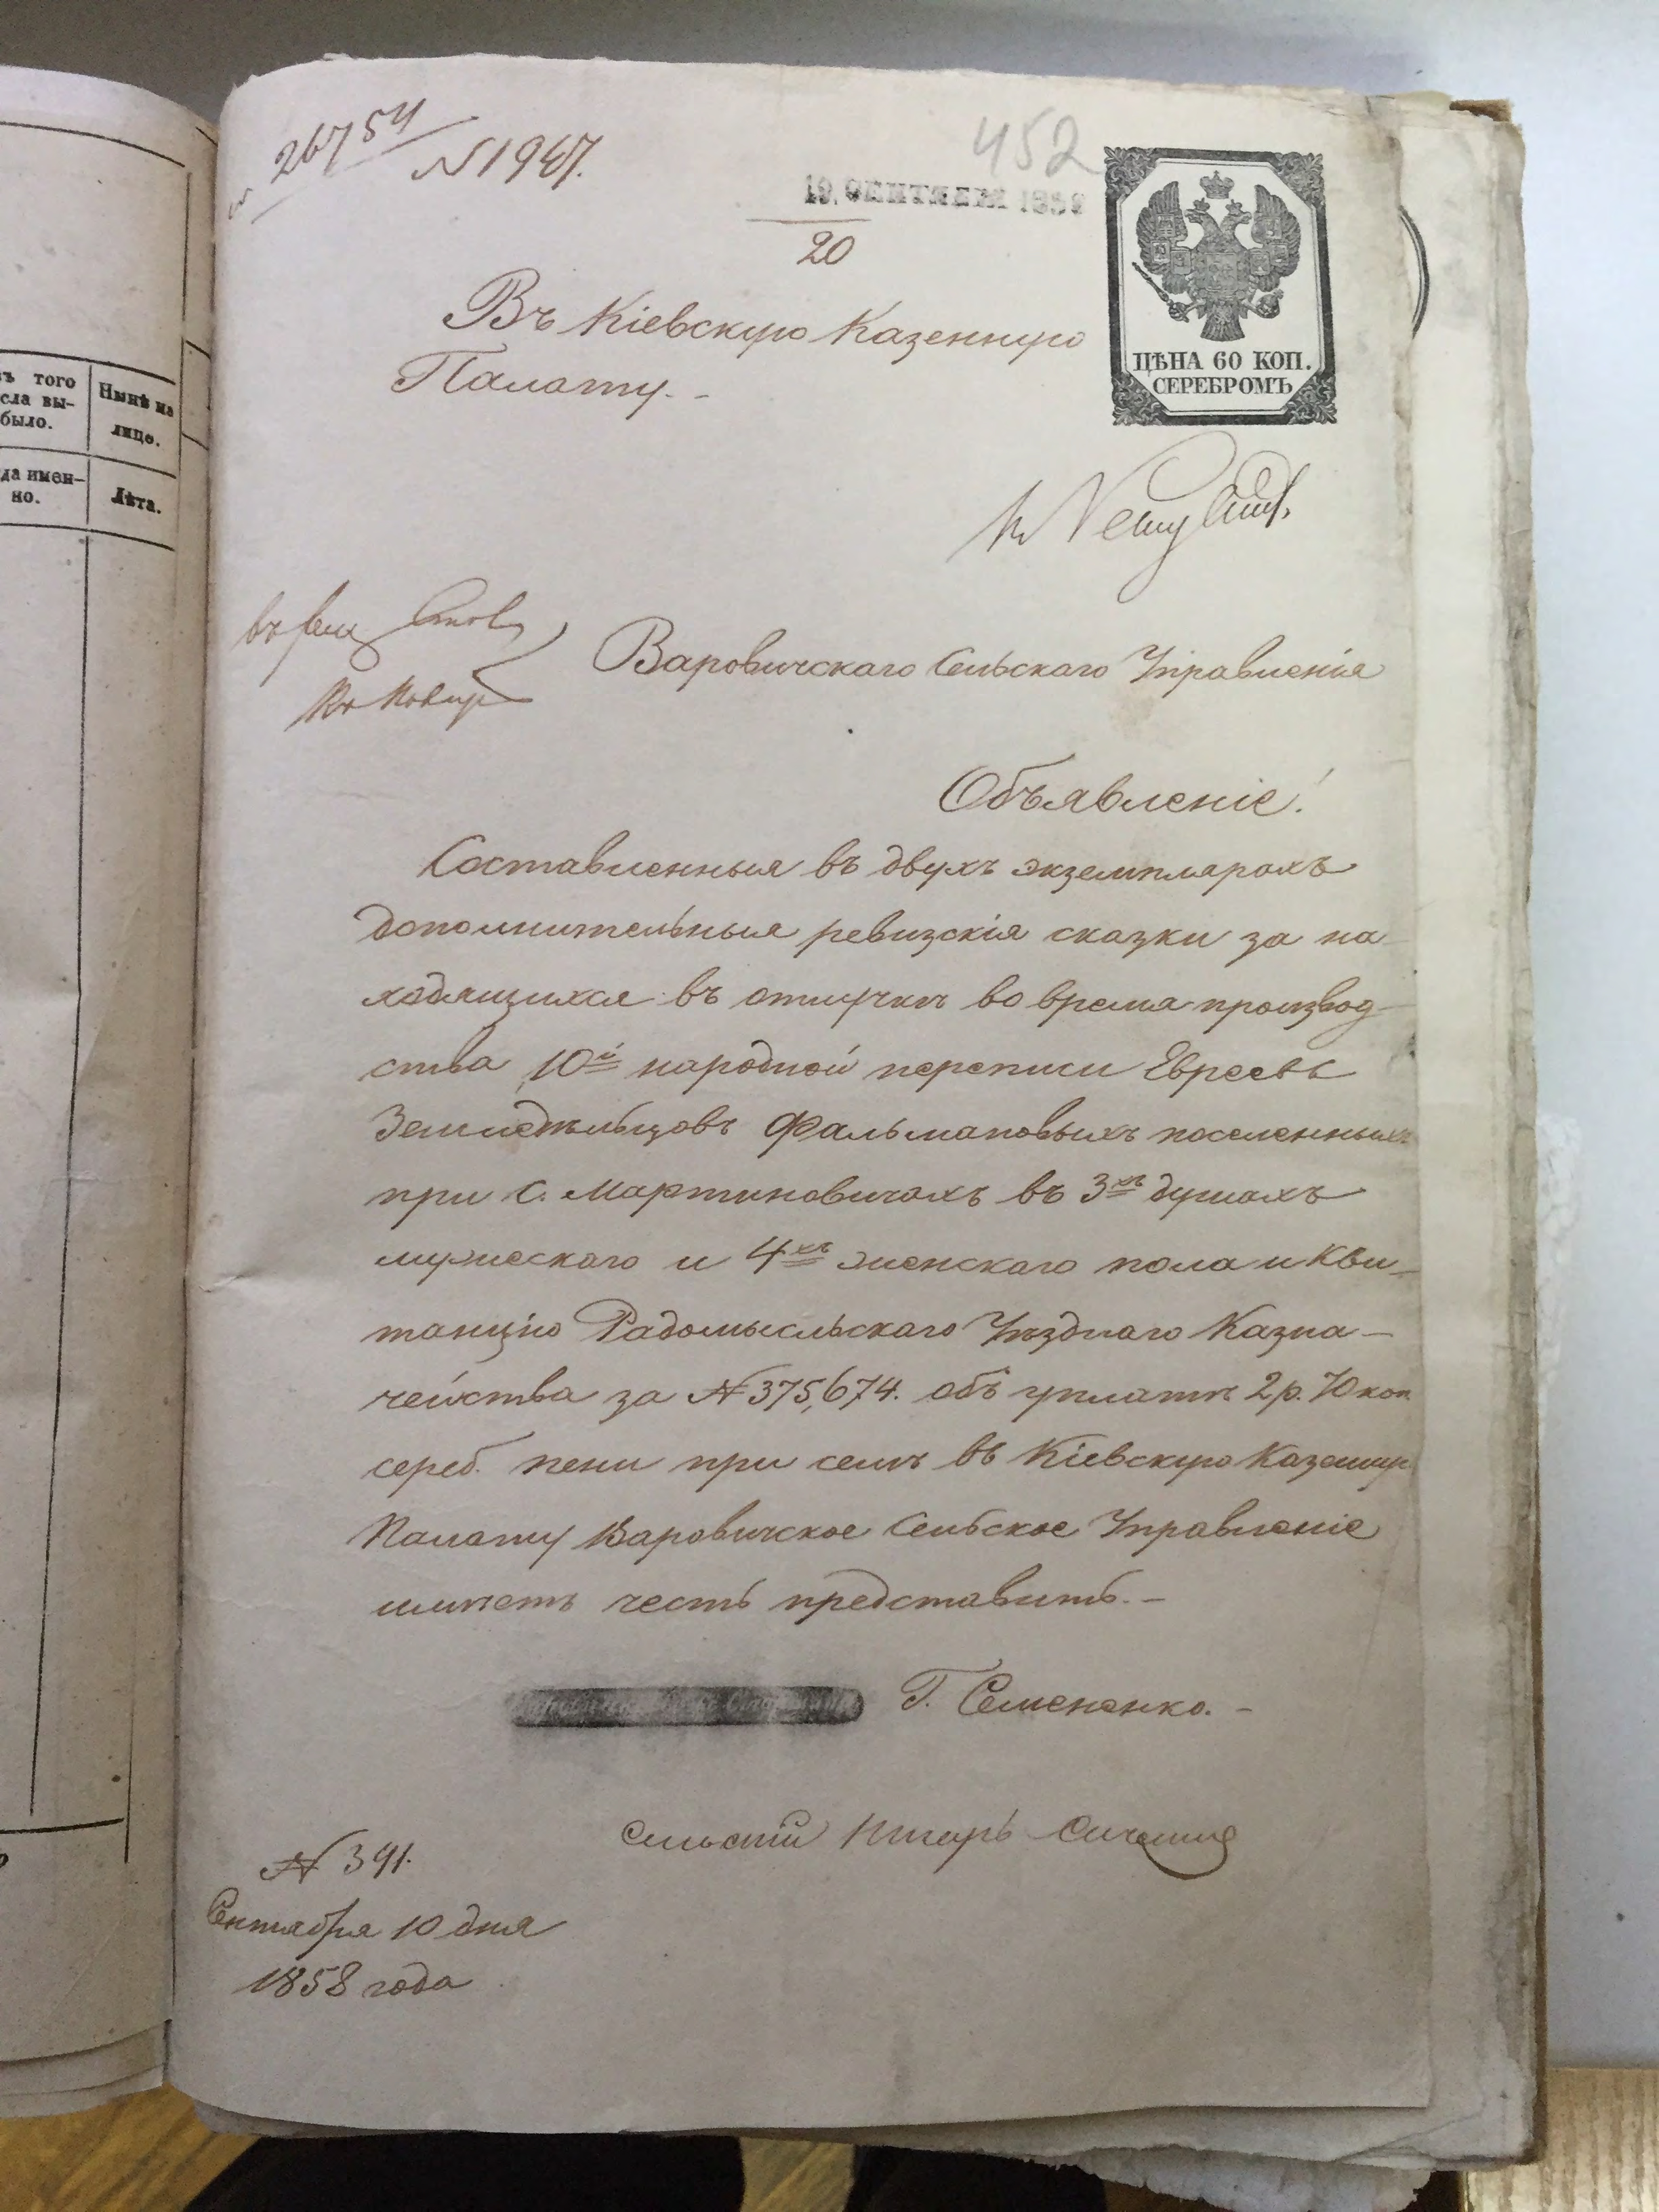 ъ того
сла вы-
было.
Нынѣ на
лицо.
да имен-
но.
Лѣта.
26754
N 1947.
452
19. СЕНТЯБРЯ 1858
20
ЦѢНА 60 КОП.
СЕРЕБРОМЪ
Въ Кіевскую Казенную
Палату. -
Варовичскаго Сельскаго Управленія
Объявленіе!
Составленныя въ двухъ экземплярахъ
дополнительныя ревизскія сказки за на-
ходящихся въ отлучкѣ во время производ-
ства 10й народной переписи Евреевъ
Земледѣльцовъ Фальмановыхъ поселенныхъ
при С. Мартиновичахъ въ 3хъ душахъ
мужескаго и 4хъ женскаго пола и Кви-
танцію Радомысльскаго Уѣзднаго Казна-
чейства за № 375,674. объ уплатѣ 2 р. 70 коп.
сереб. пени при семъ въ Кіевскую Казенную
Палату Варовичское Сельское Управленіе
имѣетъ честь представить. -
Г. Семененко. -
Сельскій Писарь
№ 391.
Сентября 10 дня
1858 года